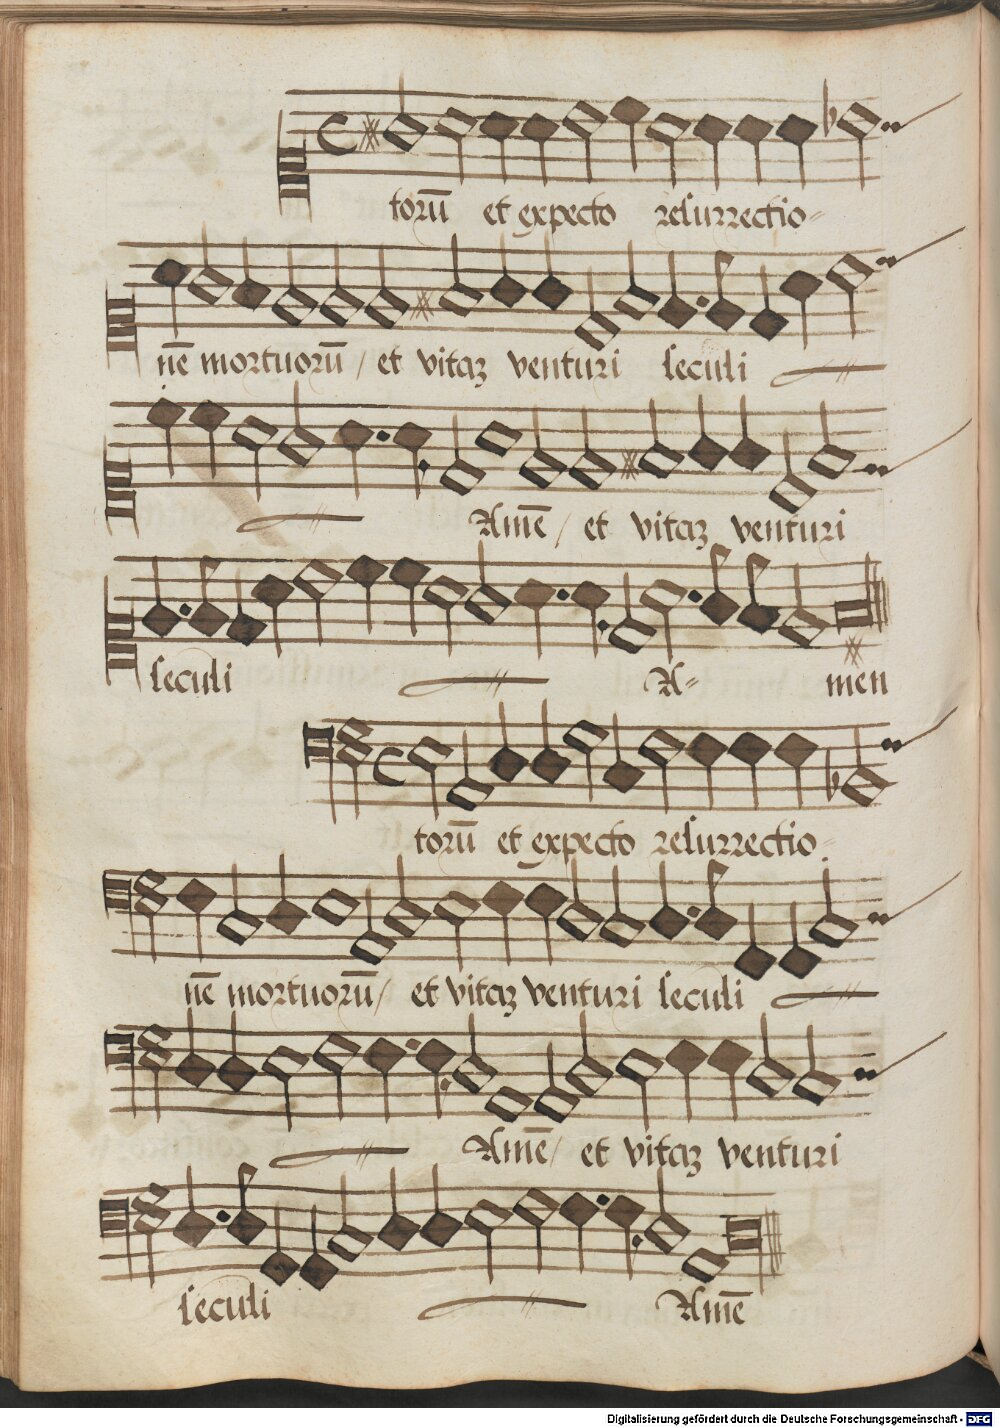 torū et expecto resurrectio-
nē mortuorū / et vitaʒ venturi seculi
Amē / et vitaʒ venturi
seculi A- men
torū et expecto resurrectio-
nē mortuorū / et vitaʒ venturi seculi
Amē / et vitaʒ venturi
seculi Amē
Digitalisierung gefördert durch die Deutsche Forschungsgemeinschaft - DFG